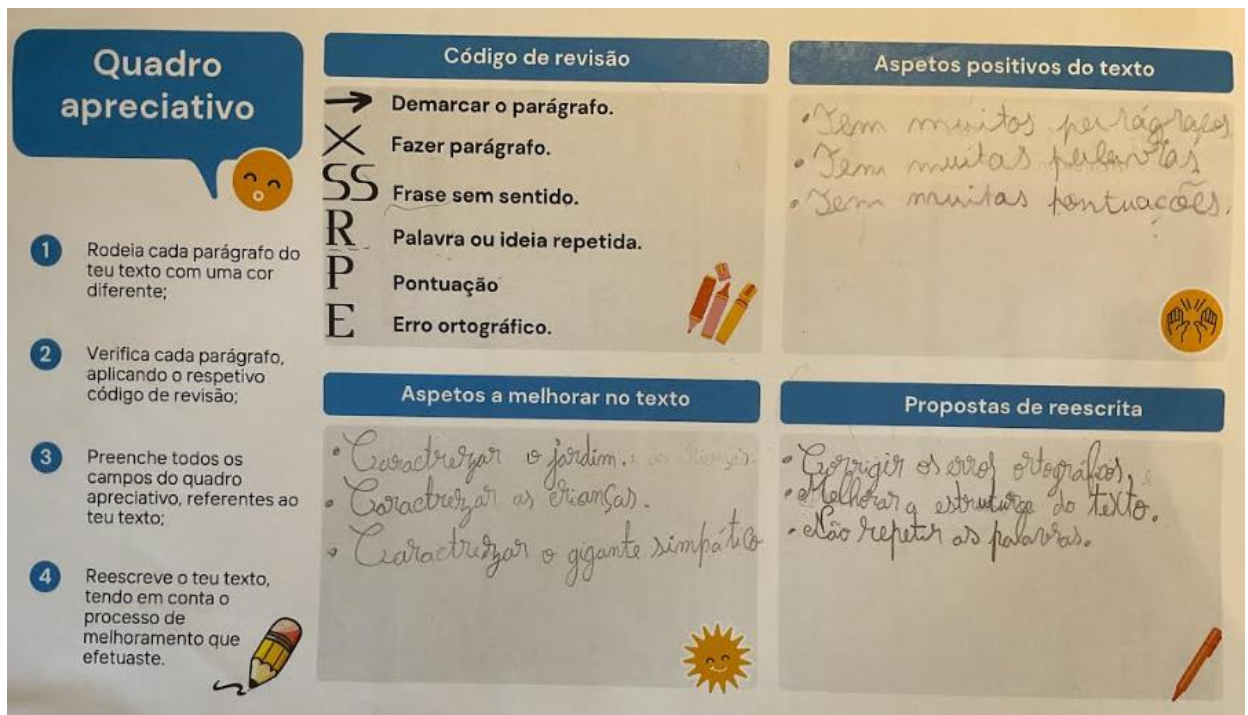 Quadro
apreciativo
1 Rodeia cada parágrafo do
teu texto com uma cor
diferente;
2 Verifica cada parágrafo,
aplicando o respetivo
código de revisão;
3 Preenche todos os
campos do quadro
apreciativo, referentes ao
teu texto;
4 Reescreve o teu texto,
tendo em conta o
processo de
melhoramento que
efetuaste.
Código de revisão
→ Demarcar o parágrafo.
X Fazer parágrafo.
SS Frase sem sentido.
R Palavra ou ideia repetida.
P Pontuação
E Erro ortográfico.
Aspetos positivos do texto
• Tem muitos parágrafos.
• Tem muitas palavras
• Tem muitas pontuações.
Aspetos a melhorar no texto
• Caractrezar o jardim.
• Caractrezar as crianças.
• Caractrezar o gigante simpático
Propostas de reescrita
• Corrigir os erros ortográficos,
• Melhorar a estruturga do texto.
• Não repetir as palavras.